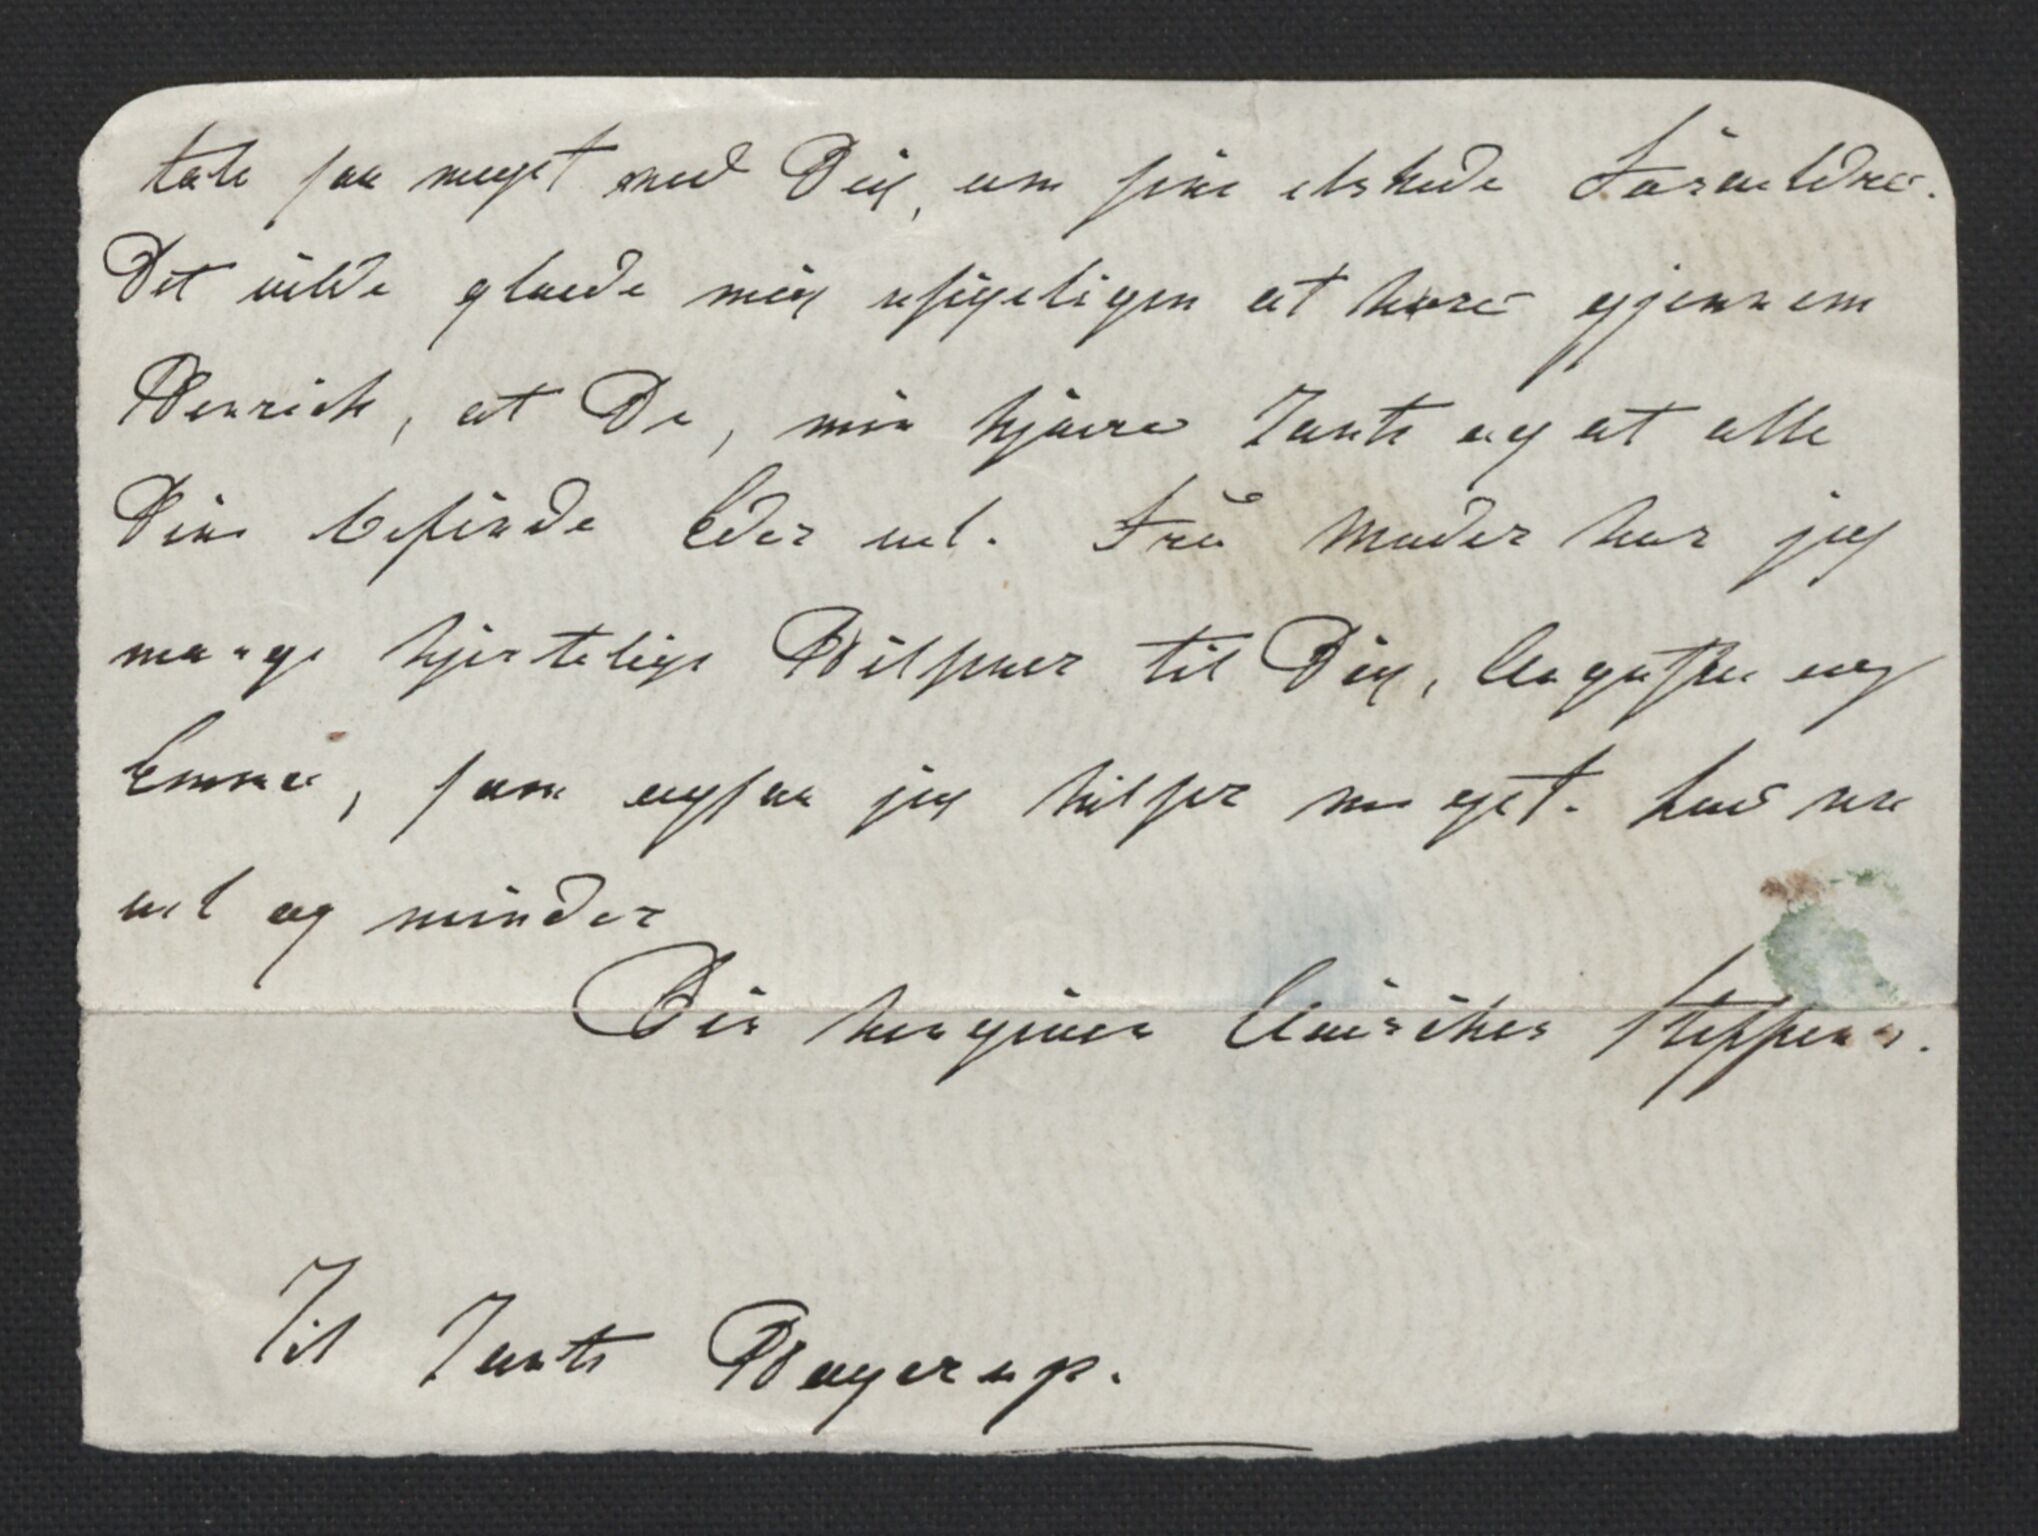 tale saa meget med Dig, om sine elskede Forældre.
Det vilde glæde mig usigeligen at høre gjennem
Henrich, at De, min kjære Tante og at alle
Dine befinde Eder vel. Fra Moder har jeg
mange hjertelige Hilsner til Dig, Auguste og
Emma, som ogsaa jeg hilser meget. Lev nu
vel og minder
Din hengivne Steffens.
Til Tante Hagerup.